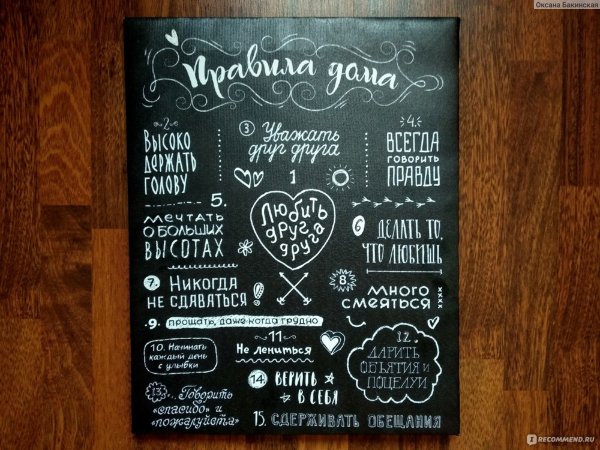 Оксана Бакинская
Правила дома
2.
Высоко
держать
голову
3 Уважать
друг друга
4.
Всегда
говорить
правду
1
Любить
друг
друга
5.
Мечтать
о больших
высотах
6 Делать то,
что любишь
7. Никогда
не сдаваться!
8.
Много
смеяться
xxxx
9. Прощать, даже когда трудно
10. Начинать
каждый день
с улыбки
11
Не лениться
12.
Дарить
объятия и
поцелуи
13. Говорить
«спасибо» и
«пожалуйста»
14. Верить
в себя
15. Сдерживать обещания
IRECOMMEND.RU